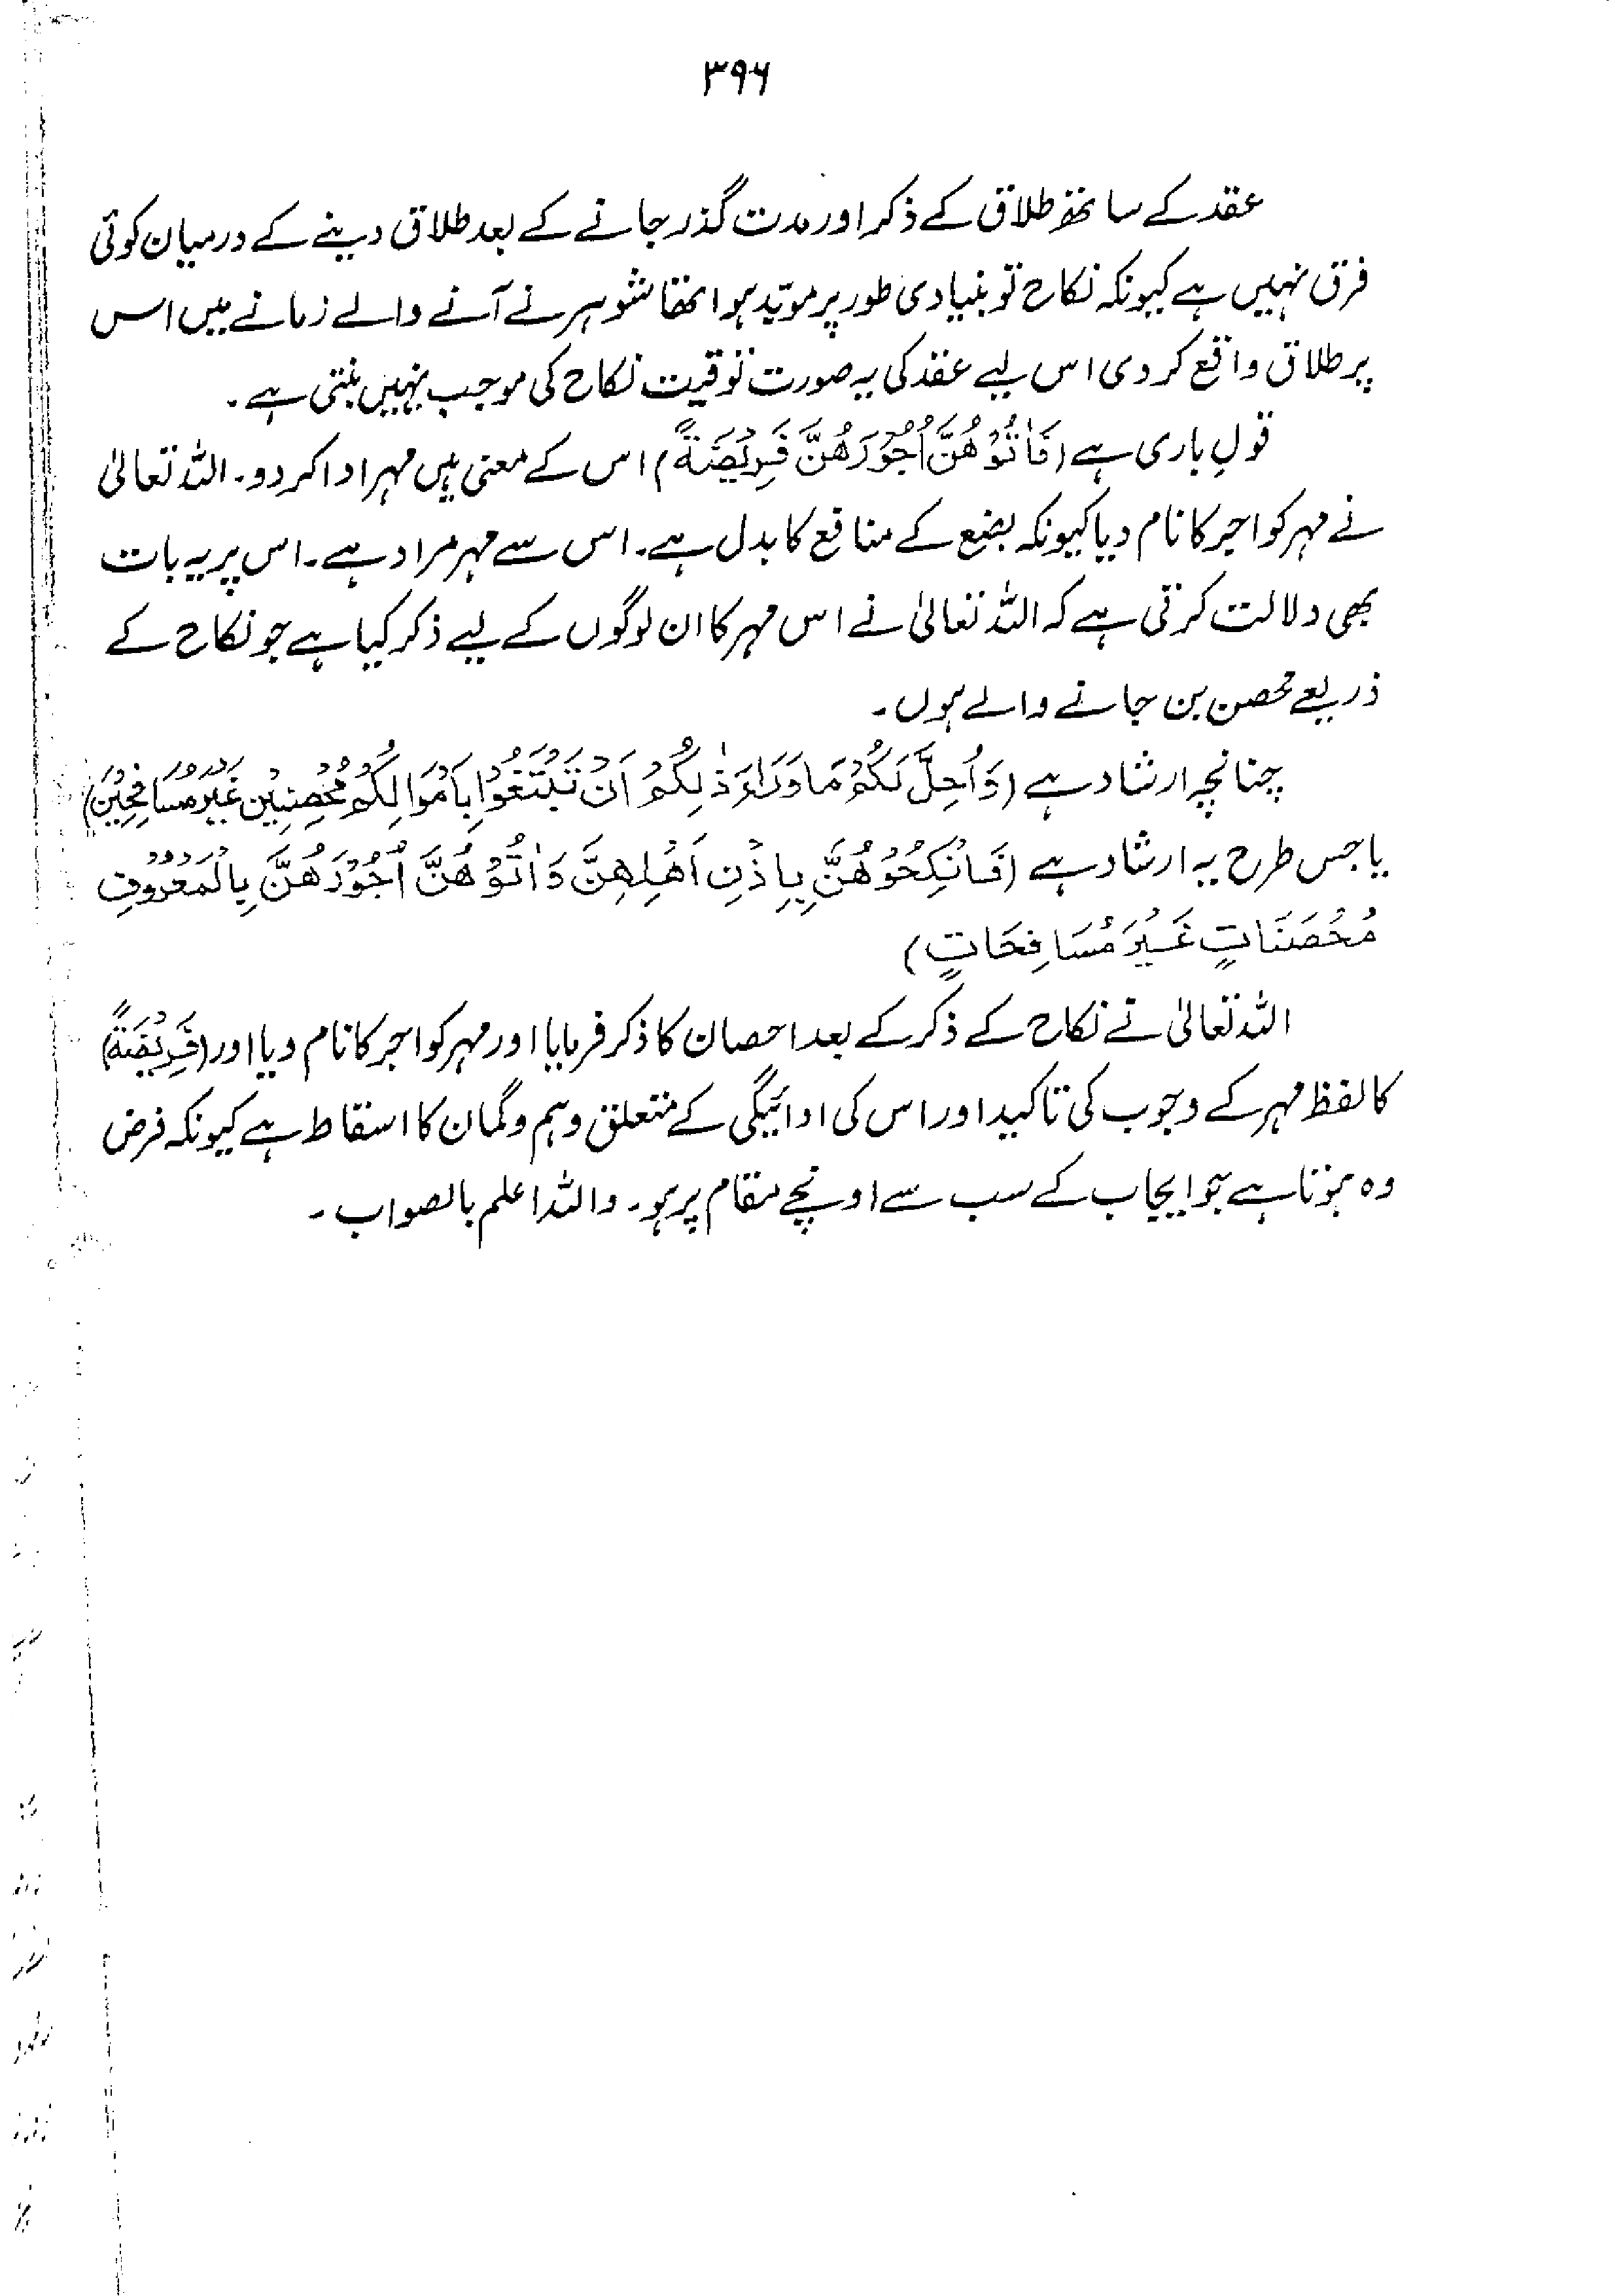 ۳۹۶
عقد کے ساتھ طلاق کے ذکر اور مدت گذر جانے کے بعد طلاق دینے کے درمیان کوئی
فرق نہیں ہے کیونکہ نکاح تو بنیادی طور پر موبد ہوا تھا شوہر نے آنے والے زمانے میں اس
پر طلاق واقع کر دی اس لیے عقد کی یہ صورت توقیت نکاح کی موجب نہیں بنتی ہے۔
قولِ باری ہے (فَاٰتُوْهُنَّ اُجُوْرَهُنَّ فَرِيْضَةً) اس کے معنی ہیں مہر ادا کر دو۔ اللہ تعالیٰ
نے مہر کو اجر کا نام دیا کیونکہ بضع کے منافع کا بدل ہے۔ اس سے مہر مراد ہے۔ اس پر یہ بات
بھی دلالت کرتی ہے کہ اللہ تعالیٰ نے اس مہر کا ان لوگوں کے لیے ذکر کیا ہے جو نکاح کے
ذریعے محصن بن جانے والے ہوں۔
چنانچہ ارشاد ہے (وَاُحِلَّ لَكُمْ مَا وَرَاءَ ذٰلِكُمْ اَنْ تَبْتَغُوْا بِاَمْوَالِكُمْ مُحْصِنِيْنَ غَيْرَ مُسَافِحِيْنَ)
یا جس طرح یہ ارشاد ہے (فَانْكِحُوْهُنَّ بِاِذْنِ اَهْلِهِنَّ وَاٰتُوْهُنَّ اُجُوْرَهُنَّ بِالْمَعْرُوْفِ
مُحْصَنَاتٍ غَيْرَ مُسَافِحَاتٍ)
اللہ تعالیٰ نے نکاح کے ذکر کے بعد احصان کا ذکر فرمایا اور مہر کو اجر کا نام دیا اور (فَرِيْضَةً)
کا لفظ مہر کے وجوب کی تاکید اور اس کی ادائیگی کے متعلق وہم و گمان کا اسقاط ہے کیونکہ فرض
وہ ہوتا ہے جو ایجاب کے سب سے اونچے مقام پر ہو۔ واللہ اعلم بالصواب۔